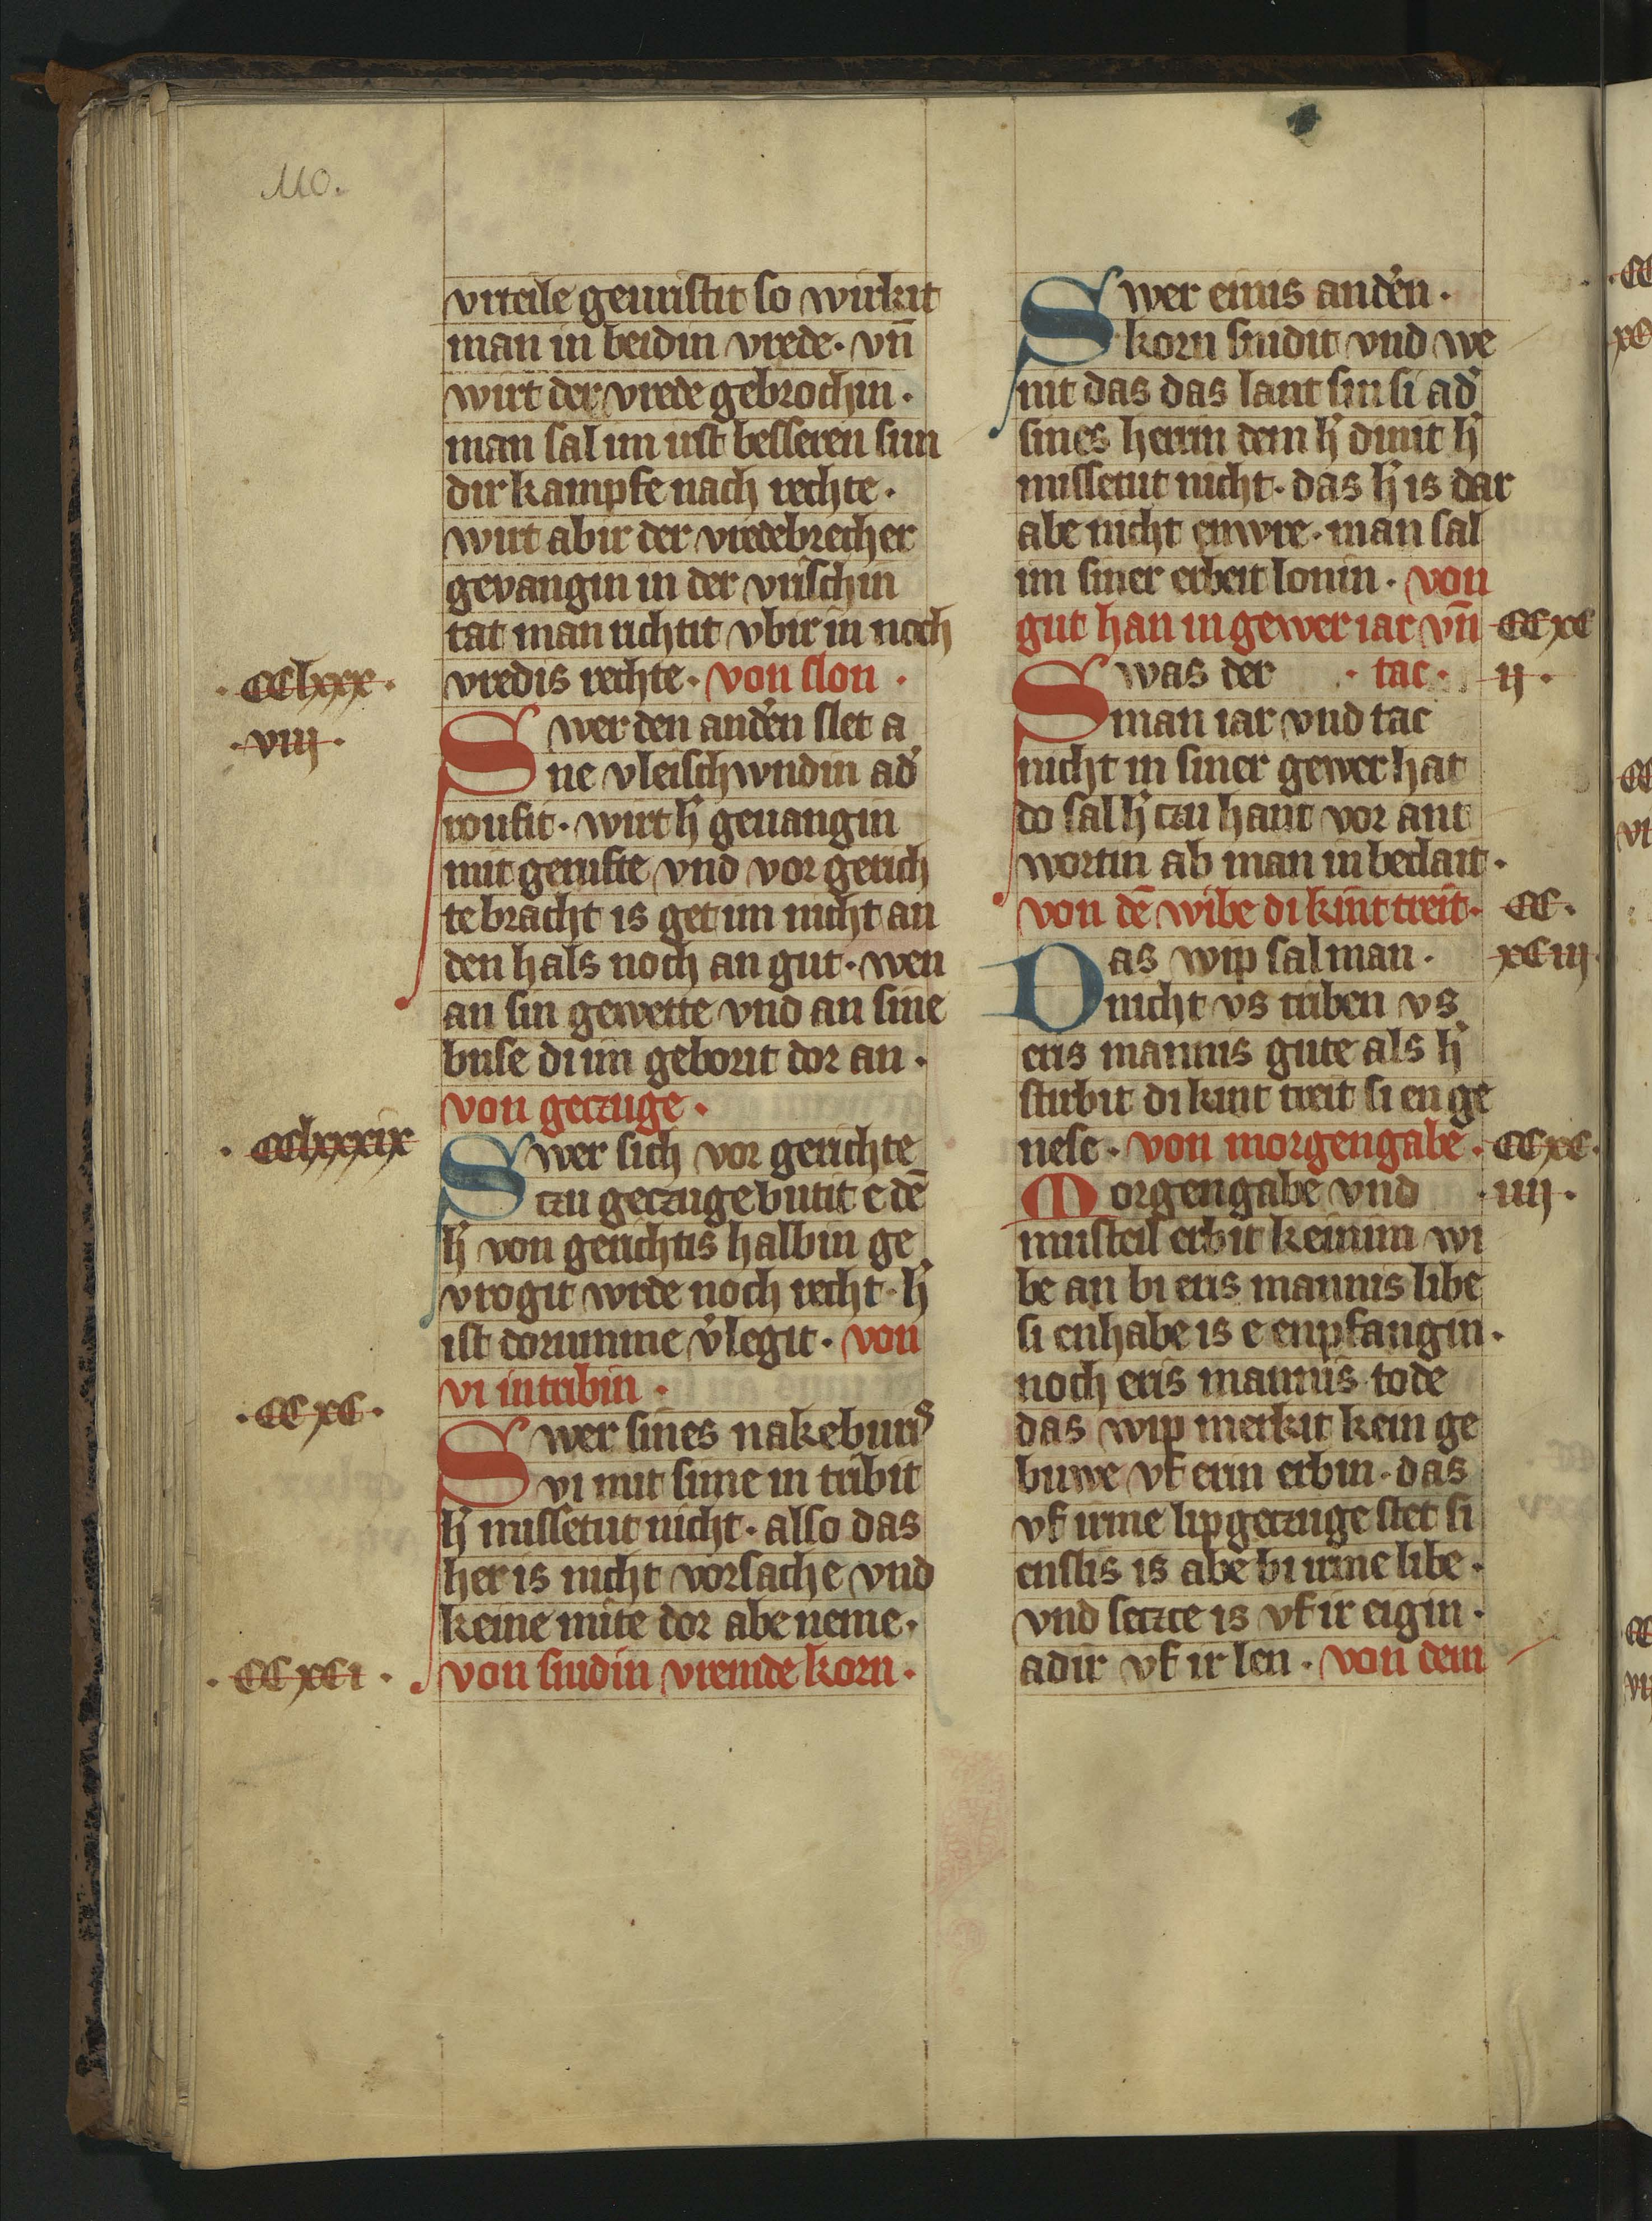 110.
vrteile geuristit so wirkit
man in beidin vrede. vn̄
wirt der vrede gebrochin.
man sal im ist besseren sun
dir kampfe nach rechte.
wirt abir der vredebrecher
gevangin in der vrischin
tat man richtit vbir in noch
vredis rechte. von slon.
.CClxxx.
.viij.
Swer den andˀen slet a
ne vleischwndin adˀ
roufit. wirt hˀ geuangin
mit gerufte vnd vor gerich
te bracht is get im nicht an
den hals noch an gut. wen
an sin gewette vnd an sine
buse di im geborit dor an.
von geczuge.
.CClxxxix
Swer sich vor gerichte
czu geczuge butit e dē
hˀ von gerichtis halbin ge
vrogit wrde noch recht. hˀ
ist dorumme vˀlegit. von
vi intribin.
.CCxC.
Swer sines nakeburis
vi mit sime in tribit
hˀ missetut nicht. also das
her is nicht vorsache vnd
keine mite dor abe neme.
.CCxCi.
von snidin vremde korn.
Swer einis andˀen.
korn snidit vnd we
nit das das lant sin si adˀ
sines herrin dem hˀ dinit hˀ
missetut nicht. das hˀ is dar
abe nicht enwre. man sal
im siner erbeit lonin. von
gut han in gewer iar vn̄
CCxC
ij.
Swas der .tac.
man iar vnd tac
nicht in siner gewer hat
do sal hˀ czu hant vor ant
wortin ab man in beclait.
von dē wibe di kint treit.
CC.
xCiij.
Das wip sal man.
nicht vs triben vs
eris mannis gute als hˀ
stirbit di kint treit si en ge
nese. von morgengabe.
CCxC.
.iiij.
Morgengabe vnd
musteil erbit keinim wi
be an bi eris mannis libe
si enhabe is e enpfangin.
noch eris mannis tode
das wip merkit kein ge
buwe vf erin erbin. das
vf irme lipgeczuge stet si
enslis is abe bi irme libe.
vnd seczce is vf ir eigin.
adir vf ir len. von dem